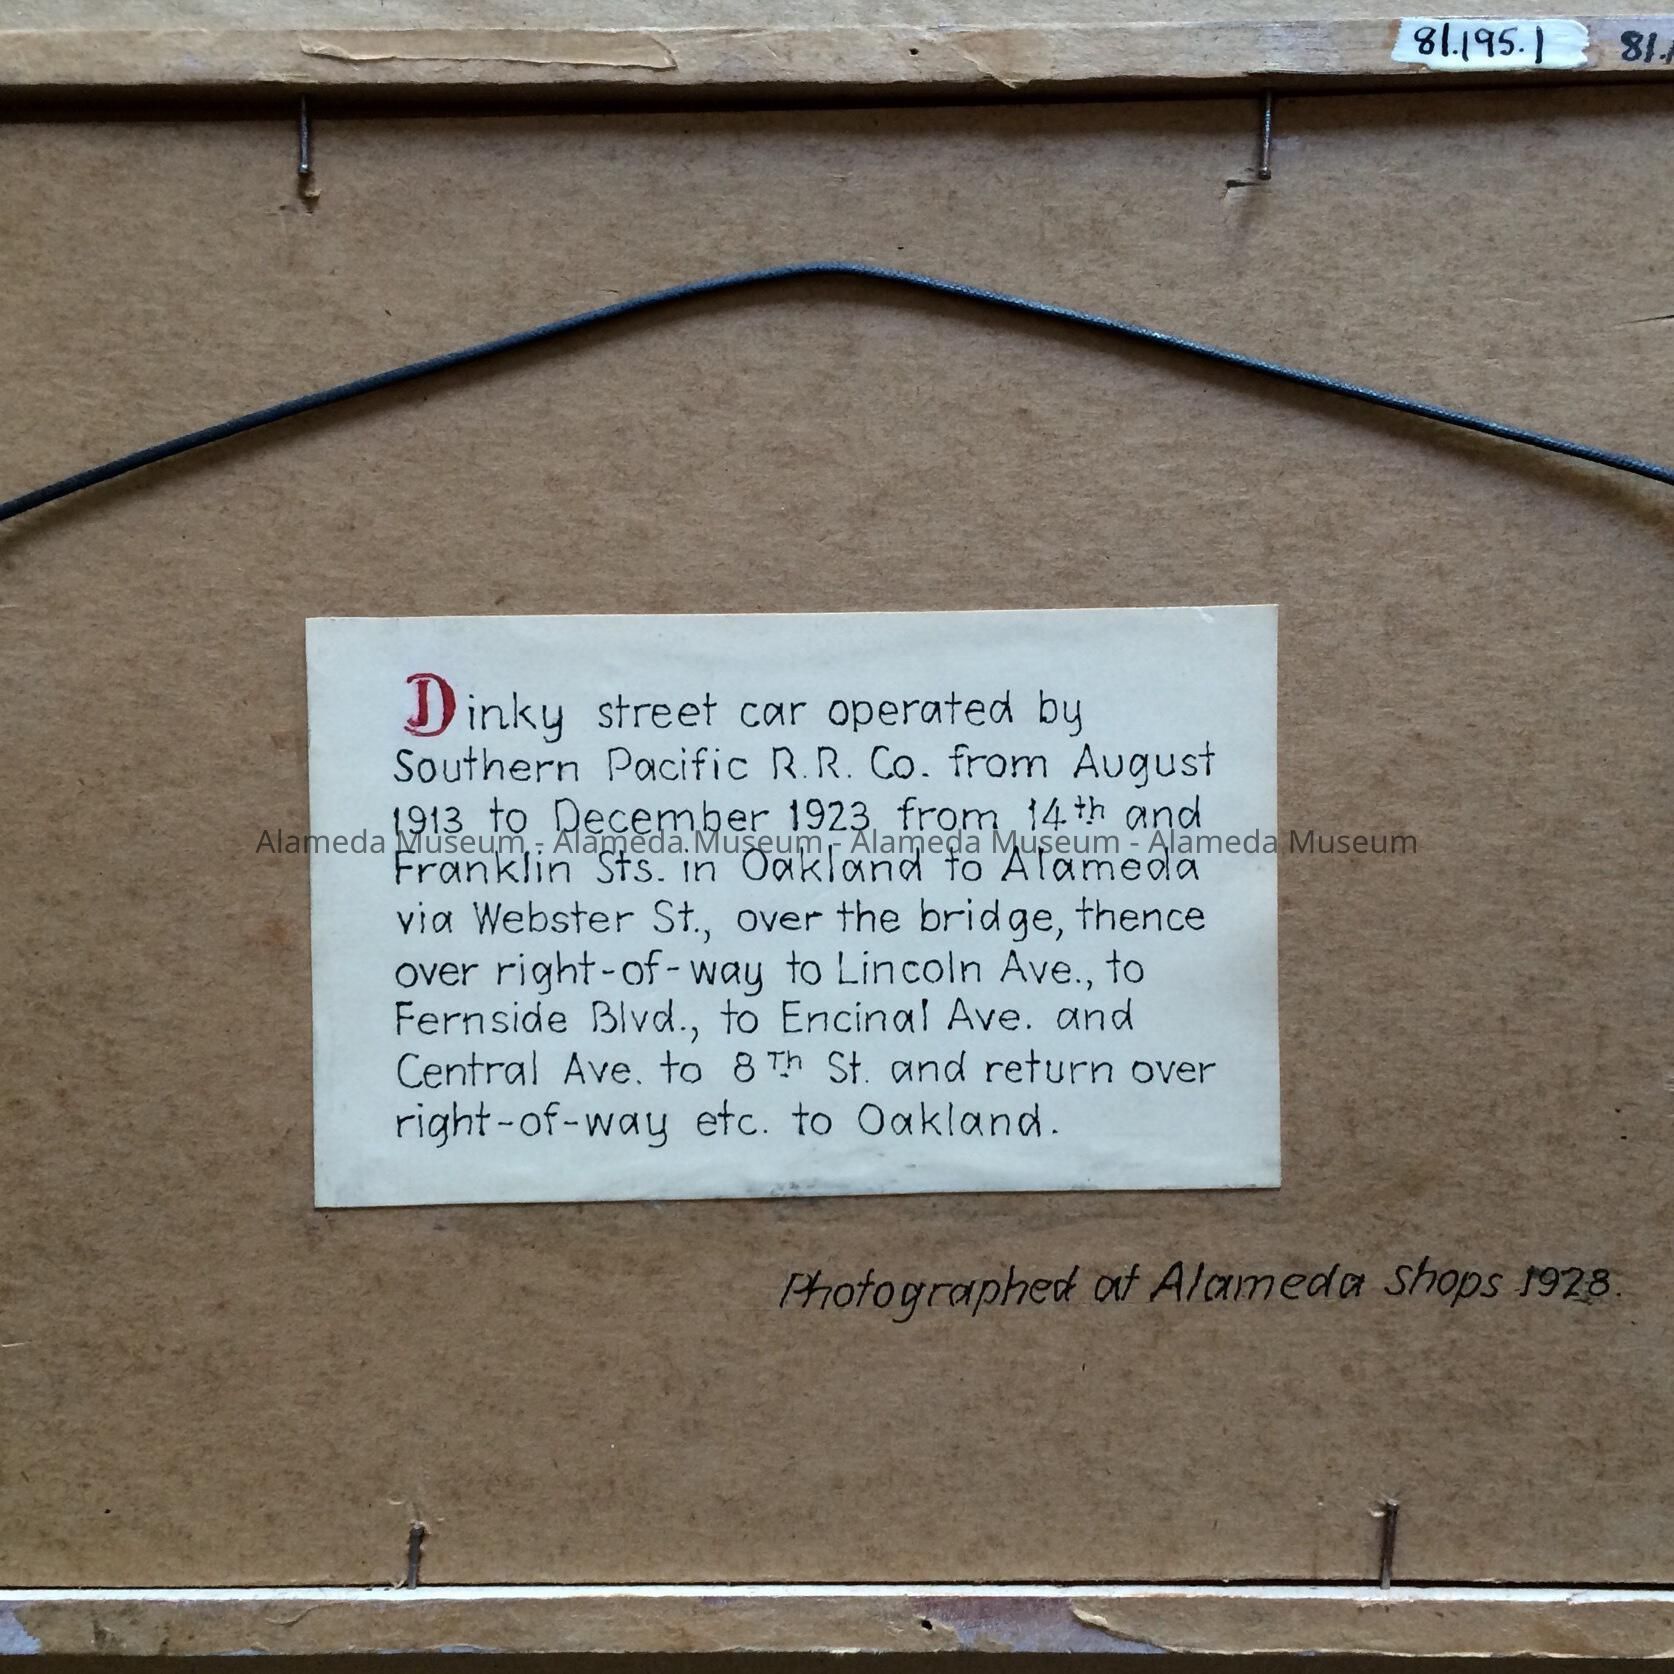 81.195.1 81.1
Dinky street car operated by
Southern Pacific R.R. Co. from August
1913 to December 1923 from 14th and
Alameda Museum - Alameda Museum - Alameda Museum - Alameda Museum
Franklin Sts. in Oakland to Alameda
via Webster St., over the bridge, thence
over right-of-way to Lincoln Ave., to
Fernside Blvd., to Encinal Ave. and
Central Ave. to 8Th St. and return over
right-of-way etc. to Oakland.
Photographed at Alameda Shops 1928.